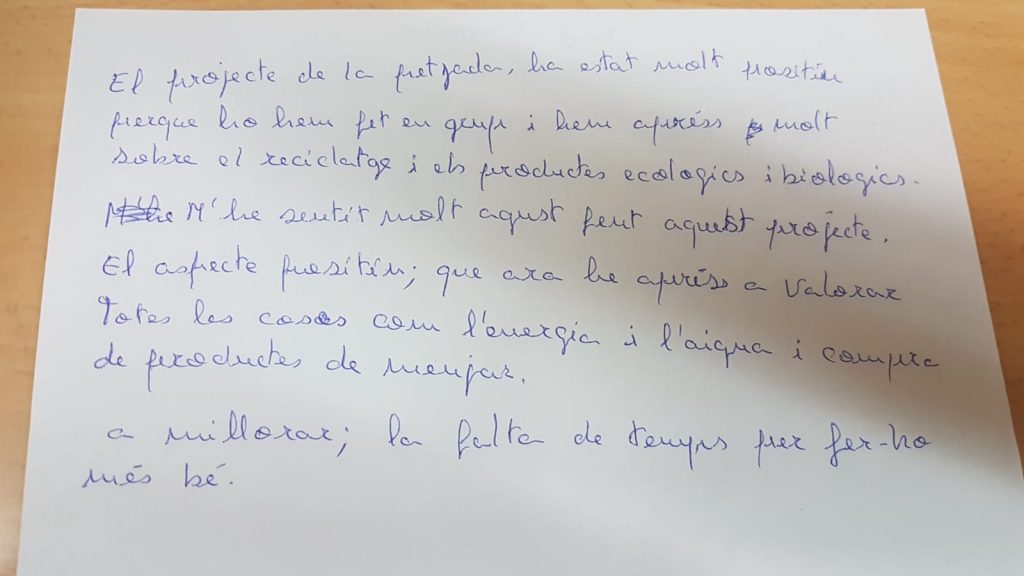 El projecte de la petjada, ha estat molt positiu
perque ho hem fet en grup i hem apréss molt
sobre el reciclatge i els productes ecologics i biologics.
M'he sentit molt agust fent aquest projecte.
El aspecte positiu; que ara he apréss a valorar
Totes les coses com l'energia i l'aigua i compra
de productes de menjar.
a millorar; la falta de temps per fer-ho
més bé.